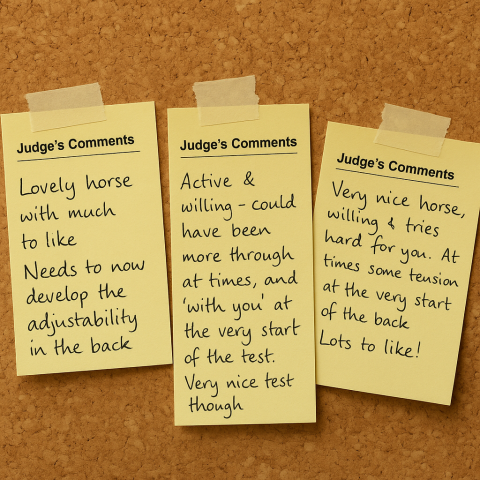 Judge's Comments
Lovely horse
with much
to like
Needs to now
develop the
adjustability
in the back
Judge's Comments
Active &
willing – could
have been
more through
at times, and
'with you' at
the very start
of the test.
Very nice test
though
Judge's Comments
Very nice horse,
willing & tries
hard for you. At
times some tension
at the very start
of the back
Lots to like!